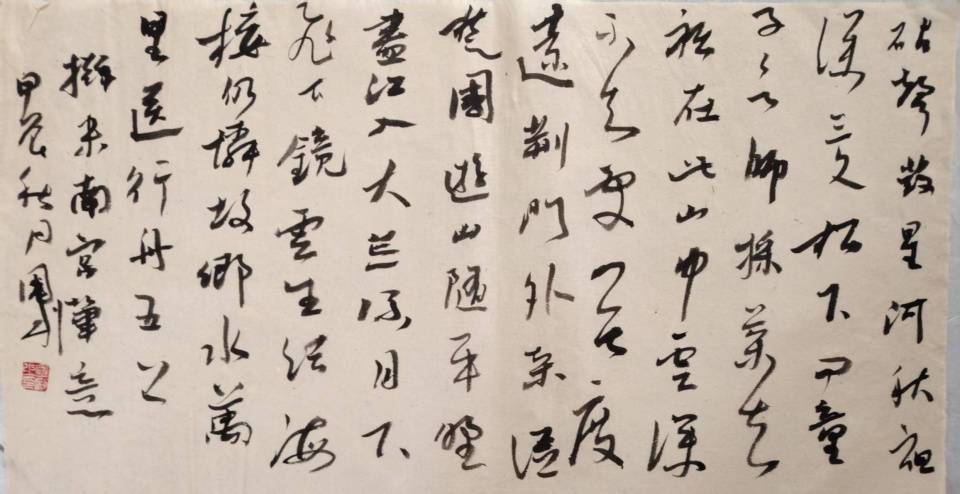 砧聲發星河秋
深三久松下問童
子言師採藥去
祗在此山中雲深
不知處度
遠荊門外來從
楚國遊山隨平野
盡江入大荒流月下
飛天鏡雲生結海
樓仍憐故鄉水萬
里送行舟五
擬米南宮筆意
甲辰秋月國